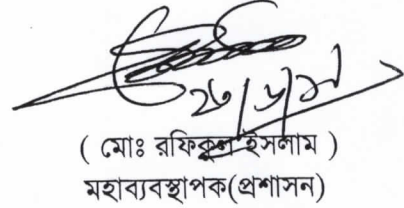 ( মোঃ রফিকুল ইসলাম )
মহাব্যবস্থাপক(প্রশাসন)